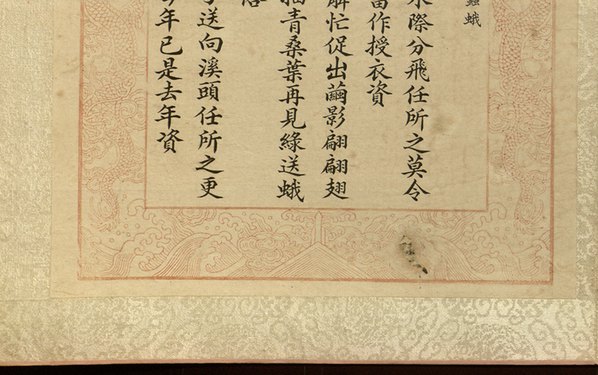 蠶蛾
水際分飛任所之莫令
當作授衣資
忙促出繭影翩翩翅
青桑葉再見綠送蛾
送向溪頭任所之更
年已是去年資